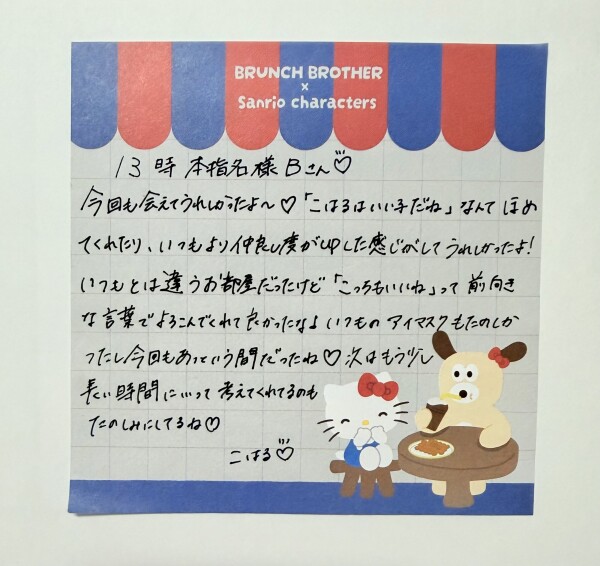 BRUNCH BROTHER
×
Sanrio characters
13時 本指名様 Bさん♡
今回も会えてうれしかったよ〜♡「こはるはいい子だね」なんて ほめ
てくれたり、いつもより仲良し度がUPした感じがしてうれしかったよ!
いつもとは違うお部屋だったけど「こっちもいいね」って 前向き
な言葉でよろこんでくれて良かったな♩ いつもの アイマスクもたのしか
ったし今回もあっという間だったね♡ 次はもう少し
長い時間にいって 考えてくれてるのも
たのしみにしてるね♡
こはる♡